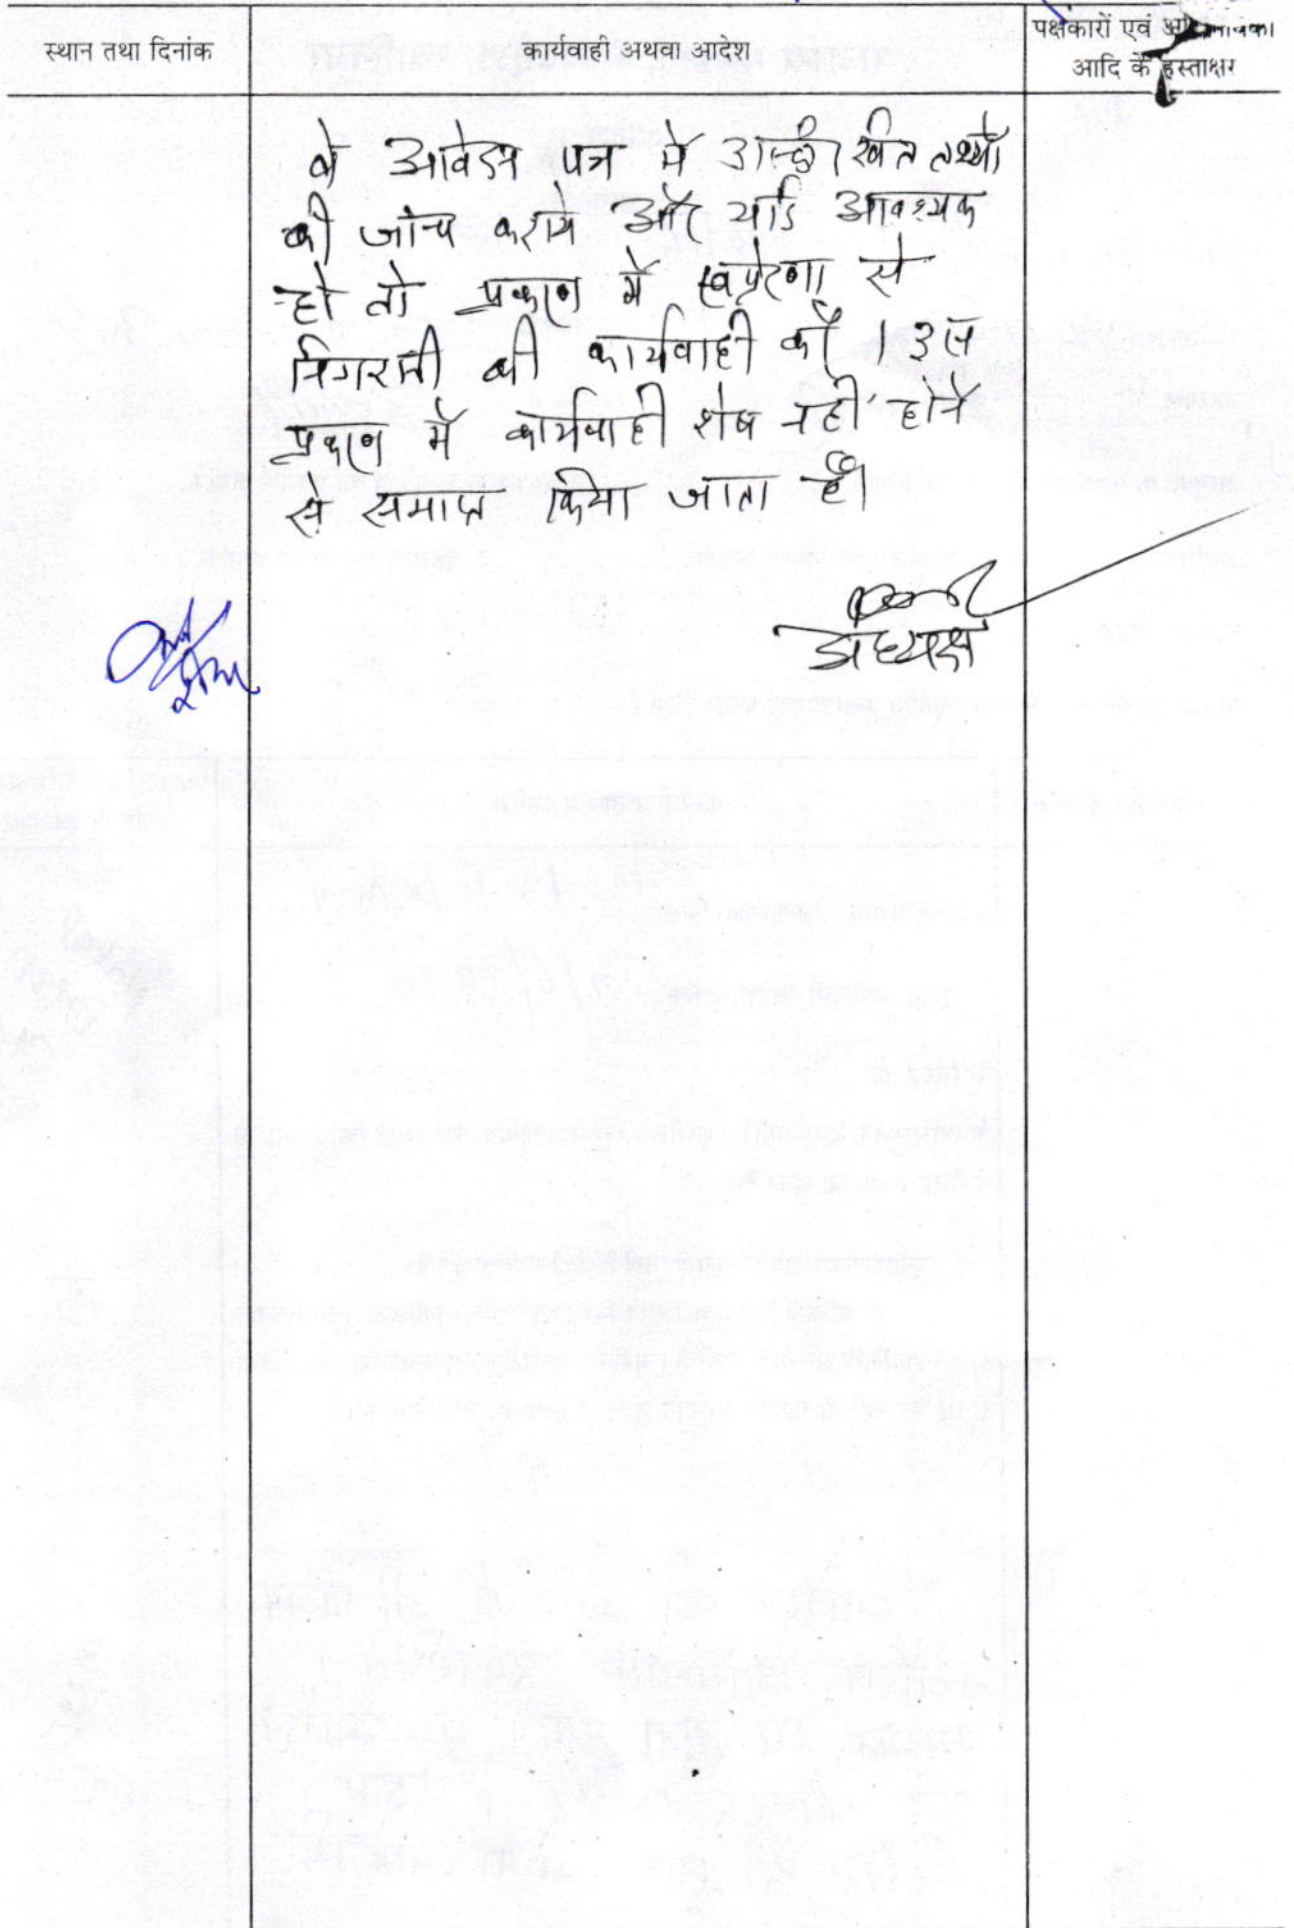 स्थान तथा दिनांक
कार्यवाही अथवा आदेश
पक्षकारों एवं
आदि के हस्ताक्षर
वे आवेदन पत्र में उल्लिखित तथ्यों
की जांच कराये और यदि आवश्यक
हो तो प्रकरण में स्वप्रेरणा से
निगरानी की कार्यवाही करें । इस
प्रकरण में कार्यवाही शेष नहीं होने
से समाप्त किया जाता है।
अध्यक्ष